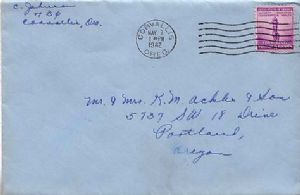 C.
Corvallis, Ore.
CORVALLIS
MAY
1 PM
1942
OREG.
Mr. & Mrs. K. M. Ackler & Son
5737 SW 18 Drive
Portland,
Oregon